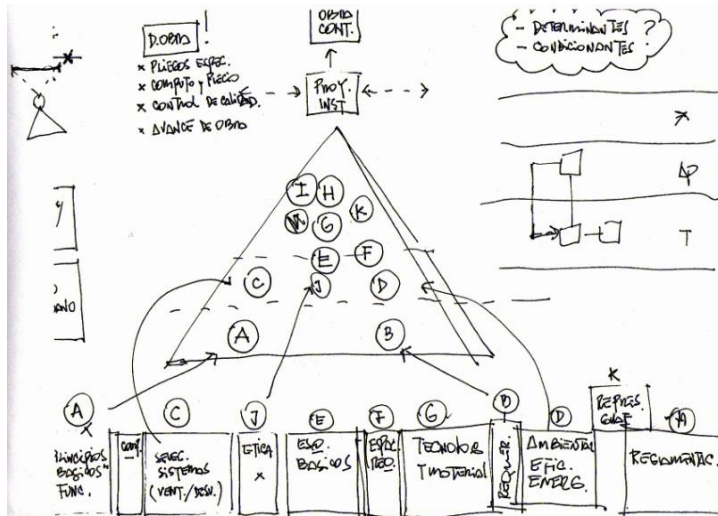 D.OBRA !
x PLIEGOS ESPEC.
x COMPUTO y PRECIO
x CONTROL DE CALIDAD.
x AVANCE DE OBRA
OBRA
CONT.
PROY.
INST
- DETERMINANTES ?
- CONDICIONANTES
Δp
T
Y
ANO
I H
K
G
E F
C J D
A B
A
C
J
E
F
G
B
D
K
H
PRINCIPIOS
BASICOS
FUNC.
CONF.
SELEC.
SISTEMAS
(VENT./DESV.)
ETICA
x
ESQ.
BASICOS
ESPAC.
REQ.
TECNOLOG
Y MATERIAL
REQUER.
AMBIENTAL
EFIC.
ENERG.
REPRES.
GRAF
REGLAMENTAC.